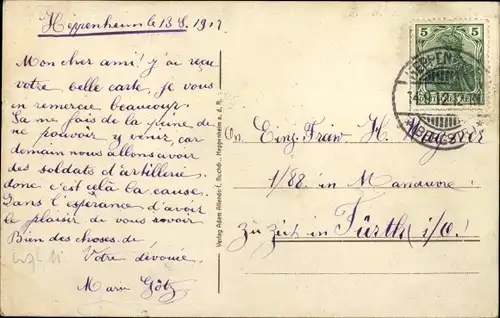 Heppenheim le 13. 8. 1912
Mon cher ami! j'ai reçu
votre belle carte, je vous
en remercie beaucoup.
Ça me fais de la peine de
ne pouvoir y venir, car
demain nous allons avoir
des soldats d'artillerie,
donc c'est celà la cause.
Dans l'espérance d'avoir
le plaisir de vous revoir
Bien des choses de,
Votre dévouée,
Marie Götz
Verlag Adam Allendorf, Buchh., Heppenheim a. d. B.
5 5
HEPPENH
An Einj. Freiw. H. Mayer
1/88. in Manöuvre!
zu Zeit in Fürth (i/O.)